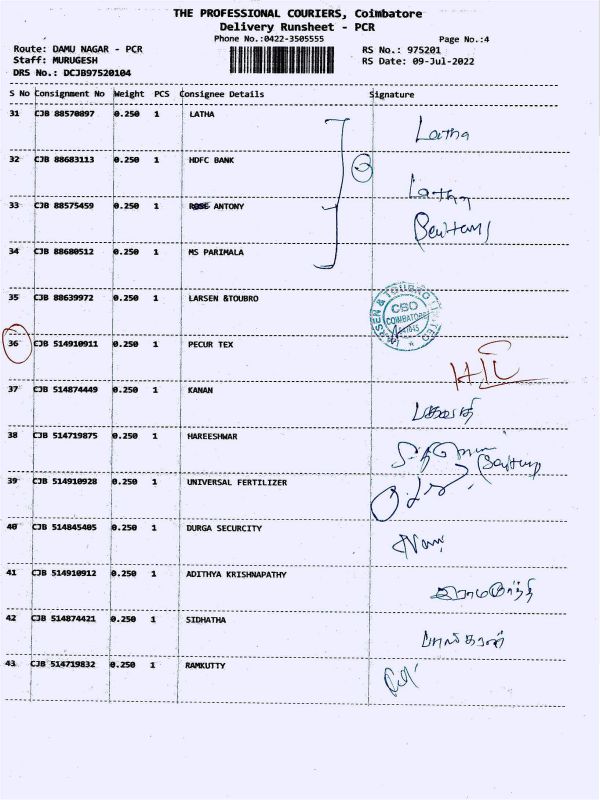 THE PROFESSIONAL COURIERS, Coimbatore
Delivery Runsheet - PCR
Phone No.:0422-3505555
Page No.:4
Route: DAMU NAGAR - PCR
RS No.: 975201
Staff: MURUGESH
RS Date: 09-Jul-2022
DRS No.: DCJB97520104
S No Consignment No Weight PCS Consignee Details Signature
31 CJB 88570897 0.250 1 LATHA Latha
32 CJB 88683113 0.250 1 HDFC BANK Latha
33 CJB 88575459 0.250 1 ROSE ANTONY
34 CJB 88680512 0.250 1 MS PARIMALA
35 CJB 88639972 0.250 1 LARSEN &TOUBRO
CSO
COIMBATORE
36 CJB 514910911 0.250 1 PECUR TEX
37 CJB 514874449 0.250 1 KANAN
38 CJB 514719875 0.250 1 HAREESHWAR
39 CJB 514910928 0.250 1 UNIVERSAL FERTILIZER
40 CJB 514845405 0.250 1 DURGA SECURCITY
41 CJB 514910912 0.250 1 ADITHYA KRISHNAPATHY
42 CJB 514874421 0.250 1 SIDHATHA
43 CJB 514719832 0.250 1 RAMKUTTY